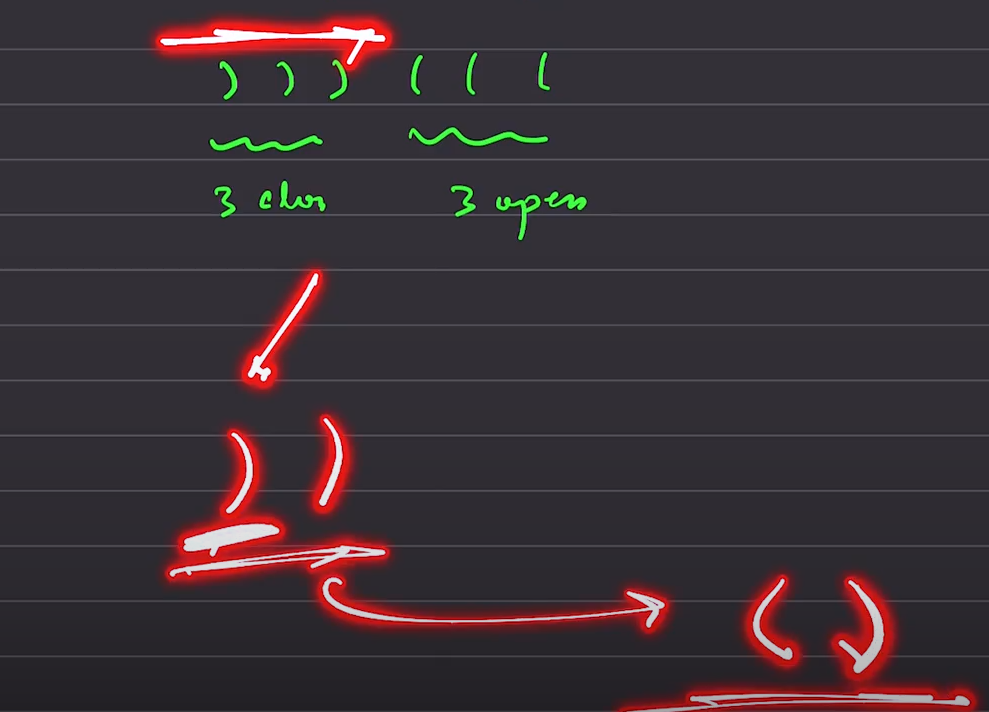 ) ) ) ( ( (
3 clos 3 open
) )
( )